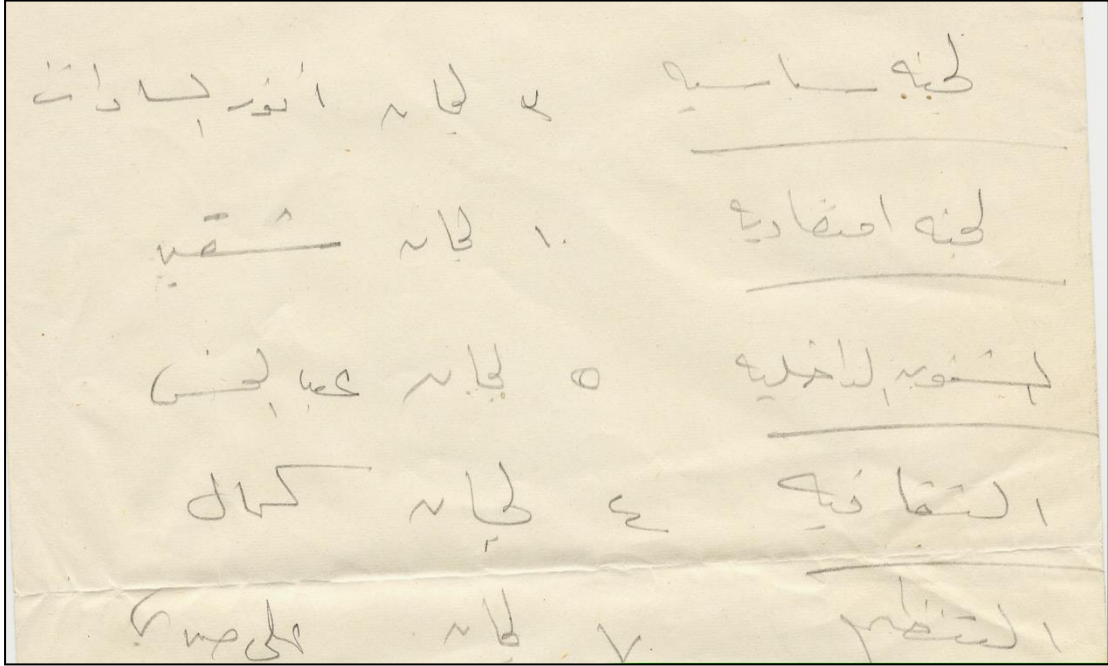 لجنه سياسيه ٣ لجان انور السادات
لجنه اقتصاديه ١٠ لجان شقير
الشئون الداخليه ٥ لجان عبد المحسن
الثقافيه ٤ لجان كمال
التنظيم ٧ لجان على صبرى